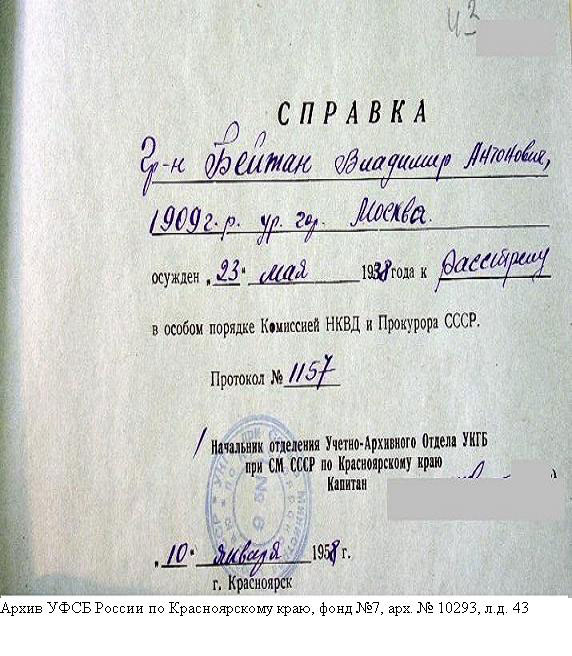 43
СПРАВКА
Гр-н Бейтан Владимир Антонович,
1909 г.р. ур. гор. Москва.
осужден „23" мая 1938 года к расстрелу
в особом порядке Комиссией НКВД и Прокурора СССР.
Протокол № 1157
Начальник отделения Учетно-Архивного Отдела УКГБ
при СМ СССР по Красноярскому краю
Капитан
„10" января 1958 г.
г. Красноярск
Архив УФСБ России по Красноярскому краю, фонд №7, арх. № 10293, л.д. 43